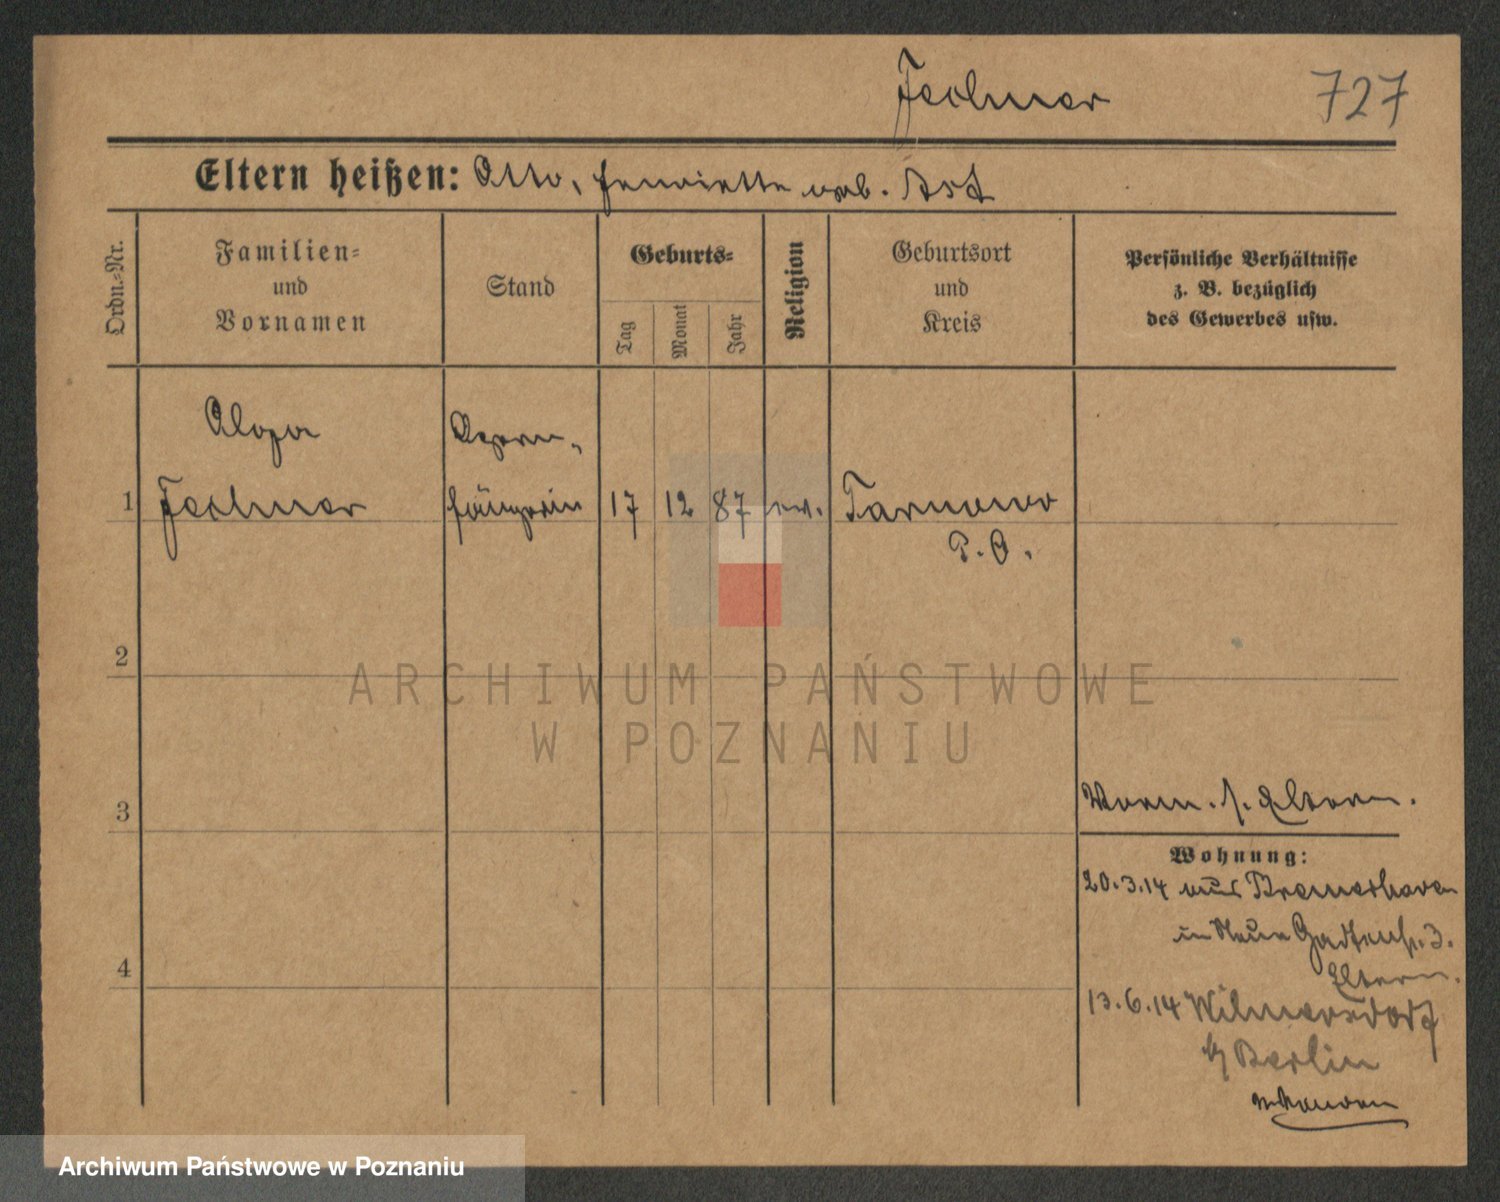 Fechner
727
Eltern heißen: Otto, Henriette geb. Ast
Ordn.-Nr.
Familien-
und
Vornamen
Stand
Geburts-
Tag
Monat
Jahr
Religion
Geburtsort
und
Kreis
Persönliche Verhältnisse
z. B. bezüglich
des Gewerbes usw.
Opern-
1 sängerin 17 12 87 ev. Tarnowo
P. O.
2
3
Verm. s. Eltern.
Wohnung:
20.3.14 aus Bremerhaven
in Neue Gartenstr. 3.
Eltern.
4
13.6.14 Wilmersdorf
b/ Berlin
ARCHIWUM PAŃSTWOWE
W POZNANIU
Archiwum Państwowe w Poznaniu